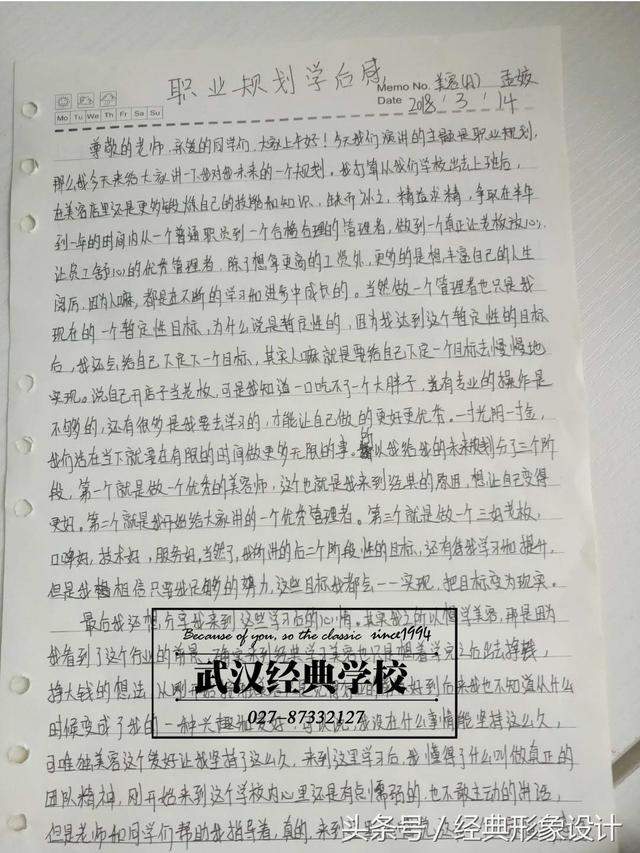 职业规划学后感
Memo No. 美容(A) 孟姣
Mo Tu We Th Fr Sa Su
Date 2018 . 3 . 14
尊敬的老师，亲爱的同学们，大家上午好！今天我们演讲的主题是职业规划，
那么我今天来给大家讲一下我对我未来的一个规划。我打算从我们学校出去上班后，
在美容店里还是更多锻炼自己的技能和知识，缺而补之，精益求精，争取在半年
到一年的时间内从一个普通职员到一个合格合理的管理者，做到一个真正让老板放心，
让员工舒心的优秀管理者，除了想拿更高的工资外，更多的是想丰富自己的人生
阅历，因为人嘛，都是在不断的学习和进步中成长的。当然做一个管理者也只是我
现在的一个暂定性目标，为什么说是暂定性的，因为我达到这个暂定性的目标
后，我还会给自己下定下一个目标，其实人嘛就是要给自己下定一个目标去慢慢地
实现。说自己开店子当老板，可是我知道一口吃不了一个大胖子，当有专业的操作是
不够的，还有很多是我要去学习的，才能让自己做的更好更优秀。一寸光阴一寸金，
我们活在当下就要在有限的时间做更多无限的事。所以我给我的未来规划分了三个阶
段，第一个就是做一个优秀的美容师，这个也就是我来到经典的原因，想让自己变得
更好。第二个就是我开始给大家讲的一个优秀管理者。第三个就是做一个三好老板，
口碑好，技术好，服务好，当然了，我所讲的后二个阶段性的目标，还有待我学习和提升，
但是我相信只要我足够的努力，这些目标我都会一一实现，把目标变为现实。
最后我还想分享我来到这些学习后的心情。其实我之所以想学美容，那是因为
我看到了这个行业的前景，确实来到经典学习美容也只是想着学完之后出去挣钱，
Because of you, so the classic since1994
挣大钱的想法，从刚开始
武汉经典学校
好到后来我也不知道从什么
时候变成了我的一种兴趣和爱好，
027-87332127
没在什么事情能坚持这么久，
可唯独美容这个爱好让我坚持了这么久，来到这里学习后，我懂得了什么叫做真正的
团队精神，刚开始来到这个学校内心里还是有点懦弱的，也不敢主动的讲话，
但是老师和同学们帮助我指导着，真的，来到这里
头条号/经典形象设计